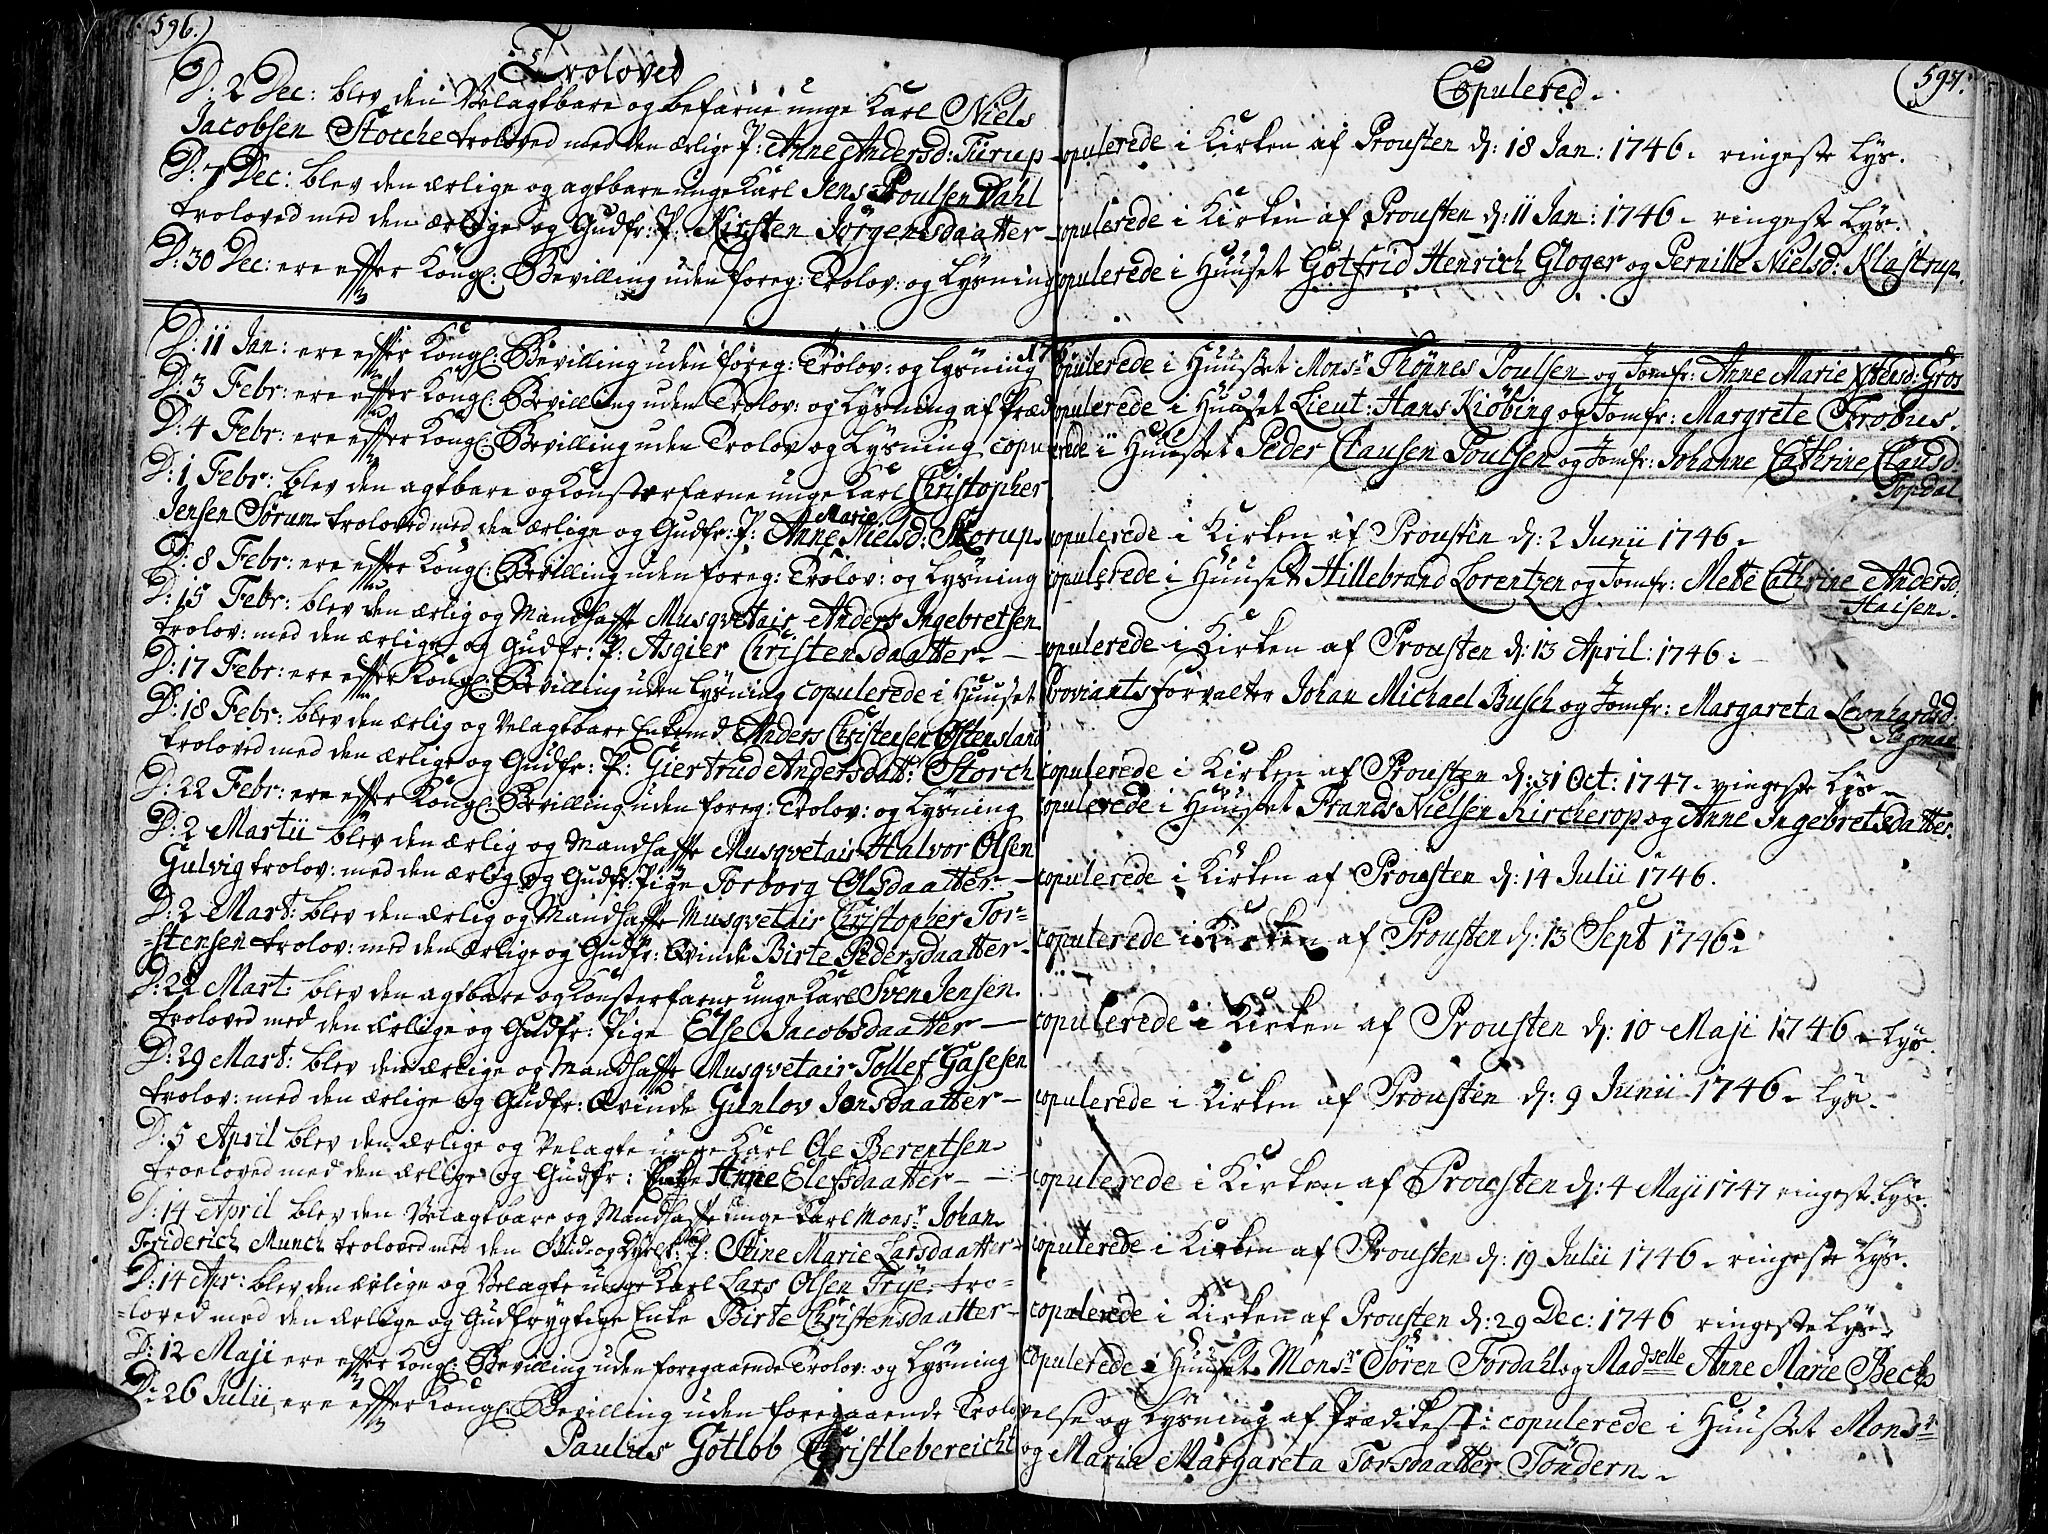 596.)
Troloved
D: 2 Dec: blev den Velagtbare og befarne unge Karl Niels
Jacobsen Storche troloved med den ærlige P: Anne Andersd: Turup
D: 7 Dec: blev den ærlige og agtbare unge Karl Jens Poulsen Dahl
troloved med den ærlige og Gudfr: P: Kirsten Jörgensdaatter
D: 30 Dec: ere effter Kongl: Bevilling uden foreg: Trolov: og Lysning
D: 11 Jan: ere effter Kongl: Bevilling uden foreg: Trolov: og Lysning
D: 3 Febr: ere effter Kongl: Bevilling uden Trolov: og Lysning af Præd
D: 4 Febr: ere effter Kongl: Bevilling uden Trolov og Lysning copu
D: 1 Febr: blev den agtbare og Konsterfarne unge Karl Christopher
Jensen Sörum troloved med den ærlige og Gudfr: P: Anne Marie Nielsd: Storup
D: 8 Febr: ere effter Kongl: Bevilling uden foreg: Trolov: og Lysning
D: 15 Febr: blev den ærlig og Mandhaffte Musqvetair Anders Ingebretsen
trolov: med den ærlige og Gudfr: P: Asgier Christensdaatter
D: 17 Febr: ere effter Kongl: Bevilling uden Lysning copulerede i Huuset
D: 18 Febr: blev den ærlig og Velagtbare Enkemd Anders Christensen Östensland
troloved med den ærlige og Gudfr: P: Giertrud Andersdatt: Storch
D: 22 Febr: ere effter Kongl: Bevilling uden foreg: Trolov: og Lysning
D: 2 Martii blev den ærlig og Mandhaffte Musqvetair Halvor Olsen
Gulvig trolov: med den ærlig og Gudfr: Pige Torborg Olsdaatter
D: 2 Mart: blev den ærlig og Mandhaffte Musqvetair Christopher Tor=
=stensen trolov: med den ærlige og Gudfr: Qvinde Birte Pedersdaatter
D: 22 Mart: blev den agtbare og Konsterfarne unge Karl Sven Jensen
troloved med den ærlige og Gudfr: Pige Else Jacobsdaatter
D: 29 Mart: blev den ærlige og Mandhaffte Musqvetair Tollef Gasesen
trolov: med den ærlige og Gudfr: Qvinde Gunlov Jonsdaatter
D: 5 April blev den ærlige og Velagte unge Karl Ole Berentsen
troeloved med den ærlige og Gudfr: Enke Anne Elefsdaatter
D: 14 April blev den Velagtbare og Mandhaffte unge Karl Monsr Johan
Friderich Munch troloved med den Gud- og Dydel: P: Stine Marie Larsdaatter
D: 14 Apr: blev den ærlige og Velagte unge Karl Lars Olsen Frye tro=
=loved med den ærlige og Gudfrygtige Enke Birte Christensdaatter
D: 12 Maji ere effter Kongl: Bevilling uden foregaaende Trolov: og Lysning
D: 26 Julii ere effter Kongl: Bevilling uden foregaaende Trolo
Paulus Gotlob Christlebereicht
(597.
Copulered.
copulerede i Kirken af Prousten d: 18 Jan: 1746. ringeste Lys.
copulerede i Kirken af Prousten d: 11 Jan: 1746. ringest Lys.
copulerede i Huuset Gotfrid Henrich Gloger og Pernille Nielsd: Klastrup.
copulerede i Huuset Monsr Thönnes Poulsen og Jomfr: Anne Marie Gros
copulerede i Huuset Lieut: Hans Kiöbing og Jomfr: Margrete Frobus.
lerede i Huuset Peder Clausen Poulsen og Jomfr: Johanne Cathrine Clausd:
Topdal
copulerede i Kirken af Prousten d: 2 Junii 1746.
copulerede i Huuset Hillebrand Lorentzen og Jomfr: Mette Cathrine Andersd
Haisen.
copulerede i Kirken af Prousten d: 13 April: 1746.
Proviantsforvalter Johan Michael Busch og Jomfr: Margareta Leonhardsd:
copulerede i Kirken af Prousten d: 31 Oct: 1747. ringeste Lys.
copulerede i Huuset Frands Nielsen Kircherop og Anne Ingebretsdatter.
copulerede i Kirken af Prousten d: 14 Julii 1746.
copulerede i Kirken af Prousten d: 13 Sept 1746.
copulerede i Kirken af Prousten d: 10 Maji 1746. Lys.
copulerede i Kirken af Prousten d: 9 Junii 1746. Lys.
copulerede i Kirken af Prousten d: 4 Maji 1747 ringest. Lys.
copulerede i Kirken af Prousten d: 19 Julii 1746. ringeste Lys.
copulerede i Kirken af Prousten d: 29 Dec: 1746 ringeste Lys.
copulerede i Huuset Monsr Sören Fordahl og Madselle Anne Marie Beck
velse og Lysning af Prædikest: copulerede i Huuset Monsr
og Maria Margareta Torsdaatter Töndern.